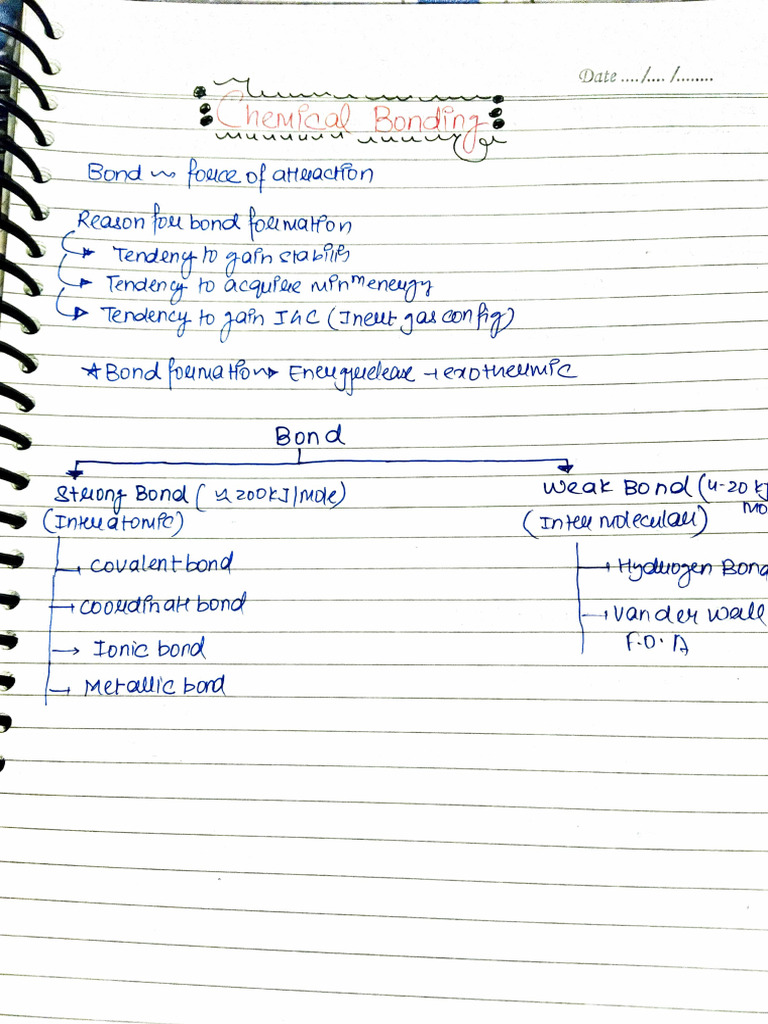 Date ..../..../........
Chemical Bonding
Bond ~ force of attraction
Reason for bond formation
→ Tendeny to gain stability
→ Tendency to acquire minᵐ energy
→ Tendency to gain IGC (Inert gas config)
★ Bond formation → Energy release → exothermic
Bond
Strong Bond ( 200 KJ/mole) Weak Bond (4-20 KJ
(Interatomic) (Inter molecular) Mo
→ covalent bond → Hydrogen Bond
→ coordinate bond → Van der Wall
→ Ionic bond F.O.A
→ Metallic bond